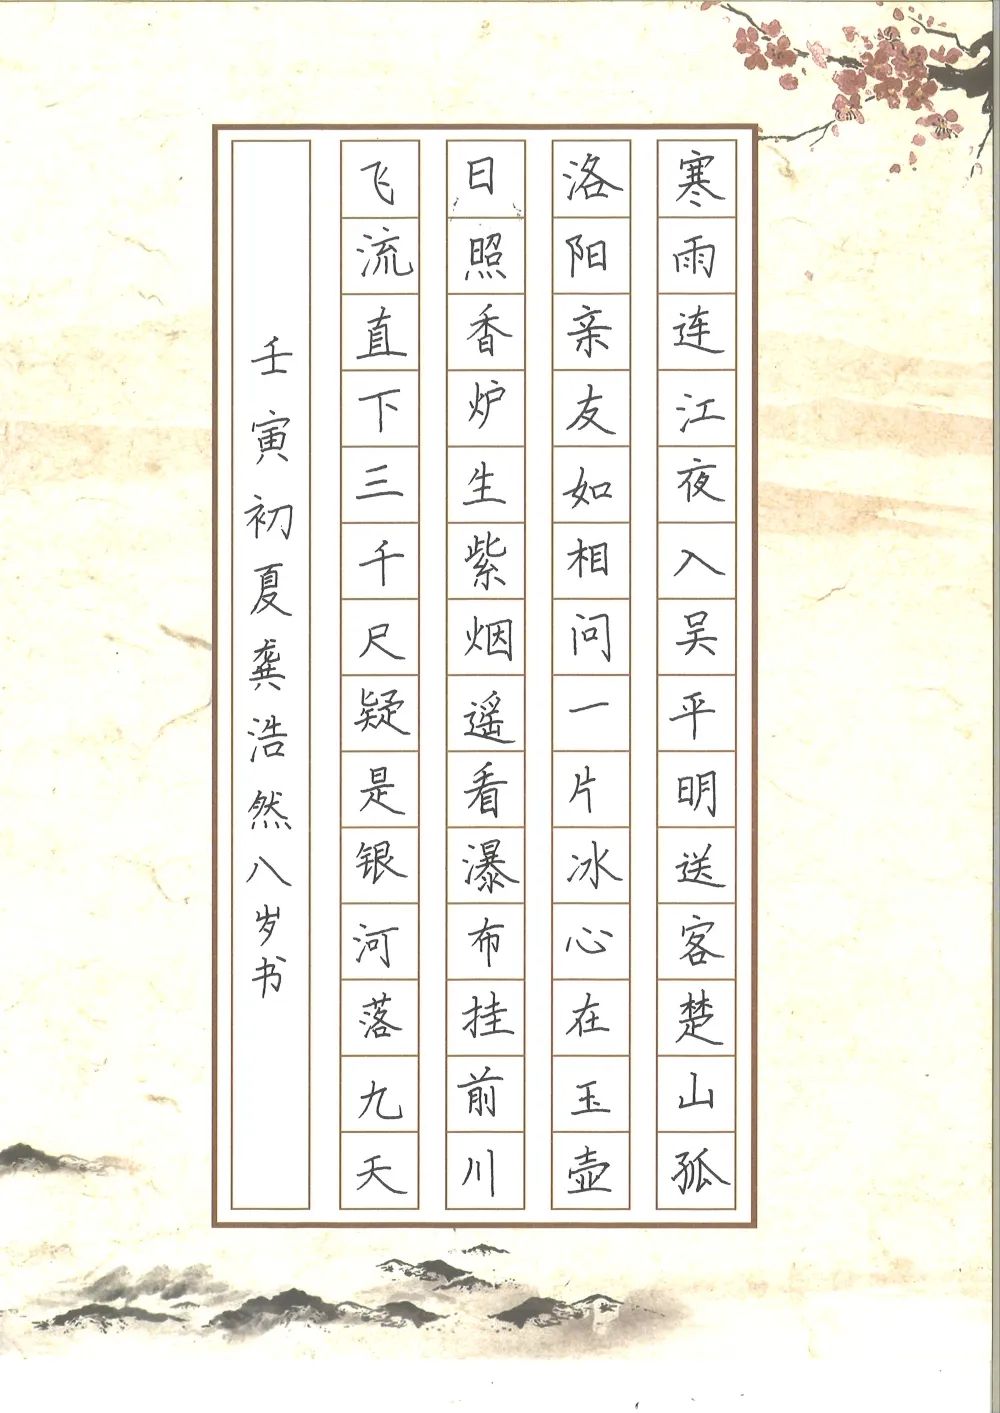 寒雨连江夜入吴平明送客楚山孤
洛阳亲友如相问一片冰心在玉壶
日照香炉生紫烟遥看瀑布挂前川
飞流直下三千尺疑是银河落九天
壬寅初夏龚浩然八岁书